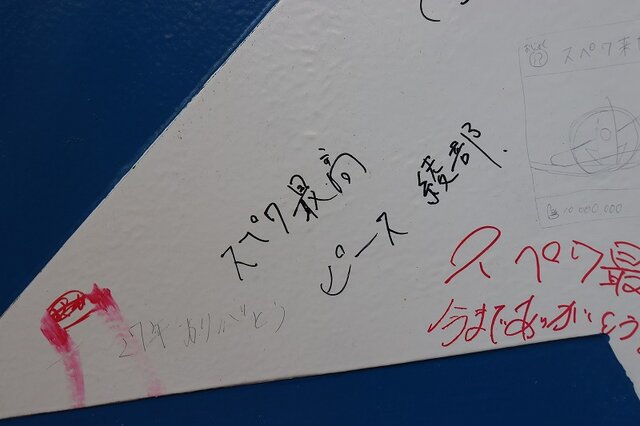 スペワ最高
ピース 綾部.
スペワ最
今までありがとう
27年ありがとう
スペワ
10,000,000